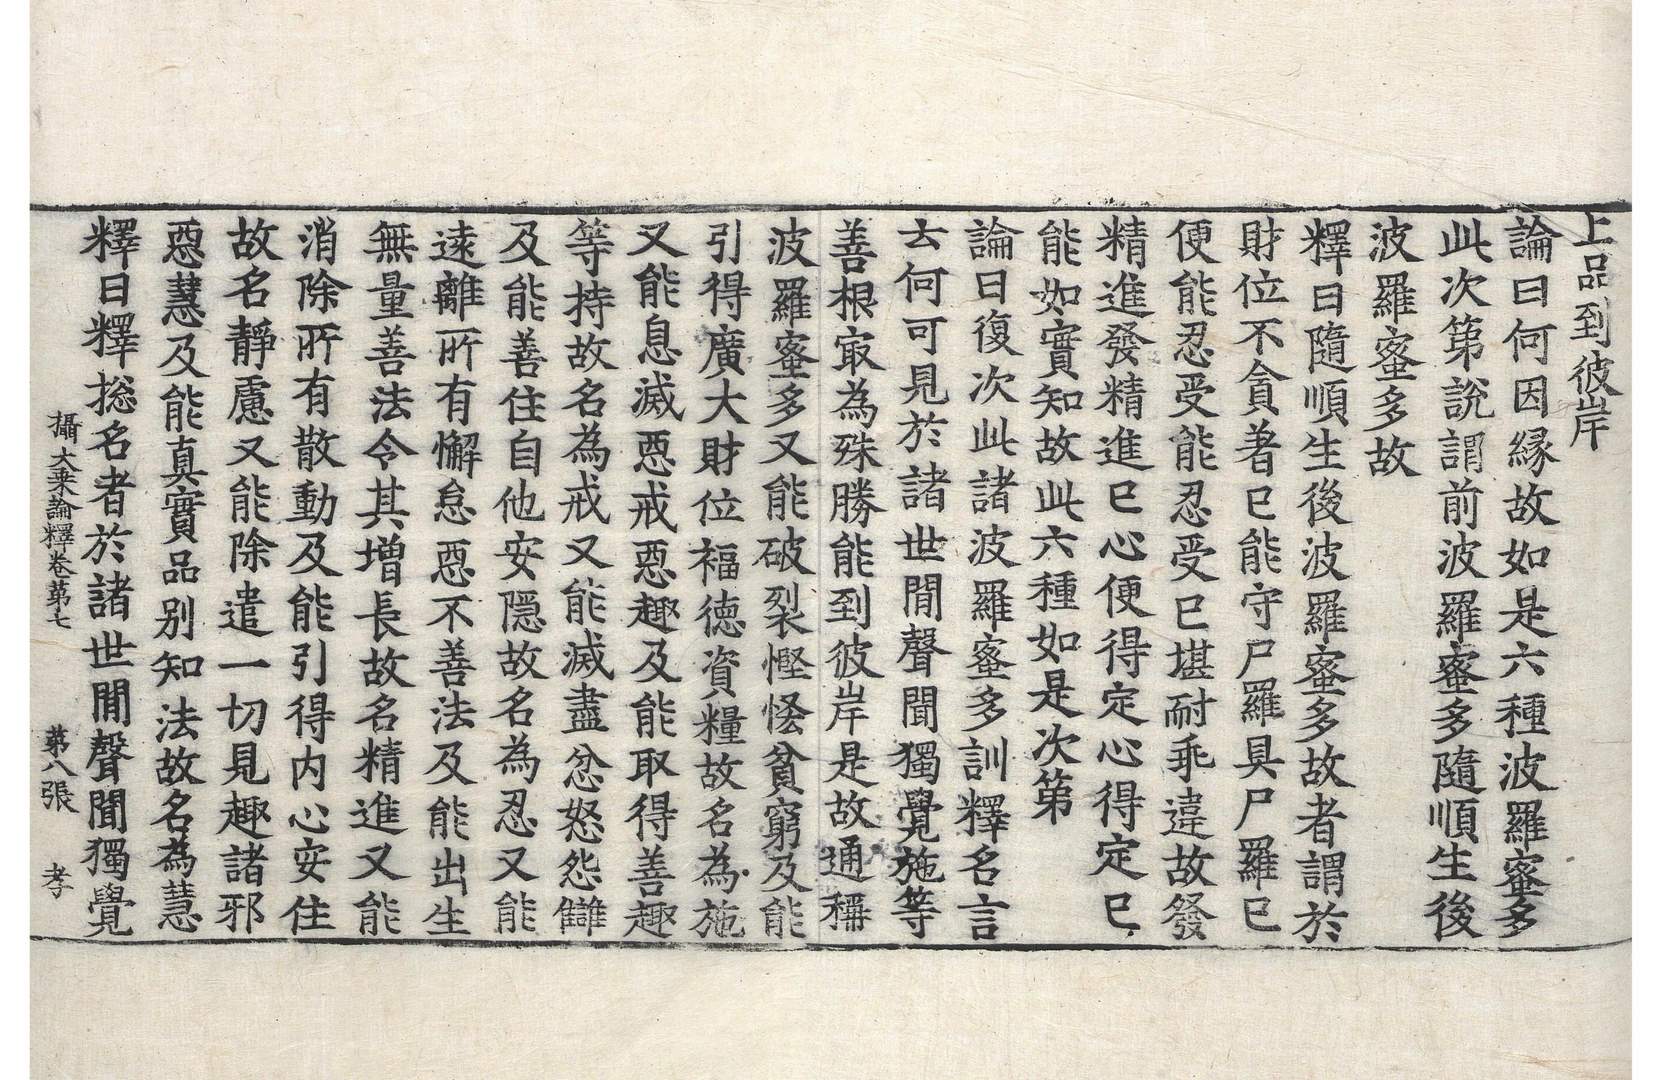 上品到彼岸
論曰何因縁故如是六種波羅蜜多
此次第說謂前波羅蜜多隨順生後
波羅蜜多故
釋曰隨順生後波羅蜜多故者謂於
財位不貪著已能守尸羅具尸羅已
便能忍受能忍受已堪耐乖違故發
精進發精進已心便得定心得定已
能如實知故此六種如是次第
論曰復次此諸波羅蜜多訓釋名言
云何可見於諸世間聲聞獨覺施等
善根㝡為殊勝能到彼岸是故通稱
波羅蜜多又能破裂慳悋貧窮及能
引得廣大財位福德資糧故名為施
又能息滅惡戒惡趣及能取得善趣
等持故名為戒又能滅盡忿怒怨讎
及能善住自他安隱故名為忍又能
遠離所有懈怠惡不善法及能出生
無量善法令其增長故名精進又能
消除所有散動及能引得内心安住
故名靜慮又能除遣一切見趣諸邪
惡慧及能真實品別知法故名為慧
釋曰釋捴名者於諸世間聲聞獨覺
攝大乘論釋卷第七 第八張 孝